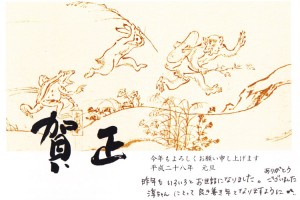 賀正
今年もよろしくお願い申し上げます
平成二十八年 元旦
昨年もいろいろとお世話になりました。ありがとうございました
淳ちゃんにとって良き春き年となりますように